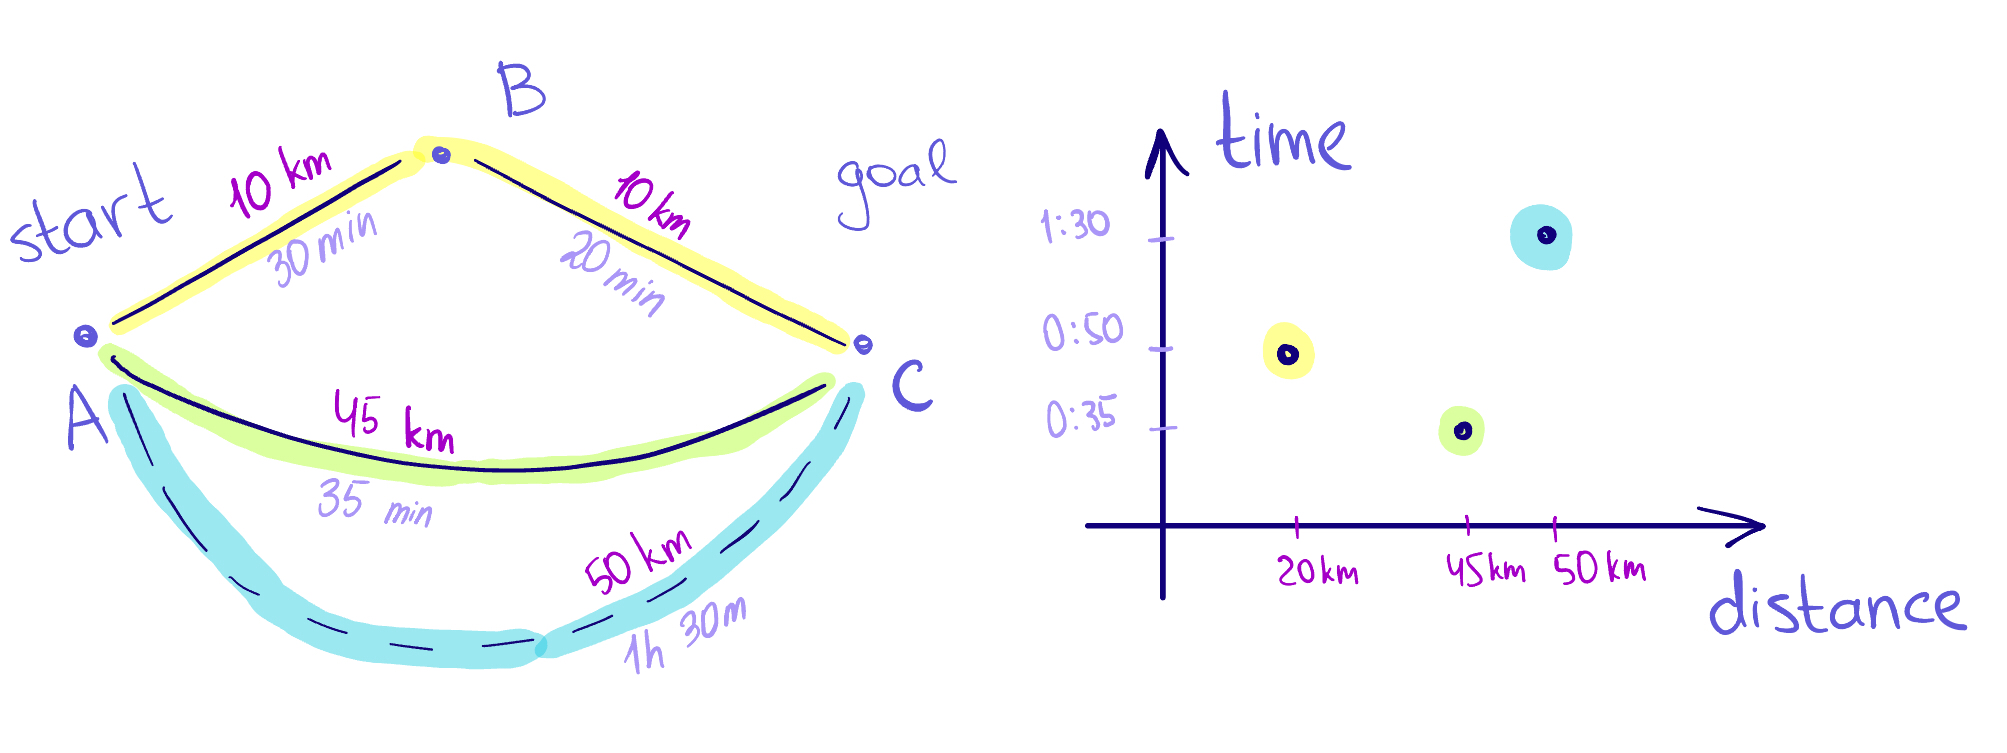 B
start
10 km
30 min
10 km
20 min
goal
A
C
45 km
35 min
50 km
1h 30m
time
1:30
0:50
0:35
20km
45km
50 km
distance